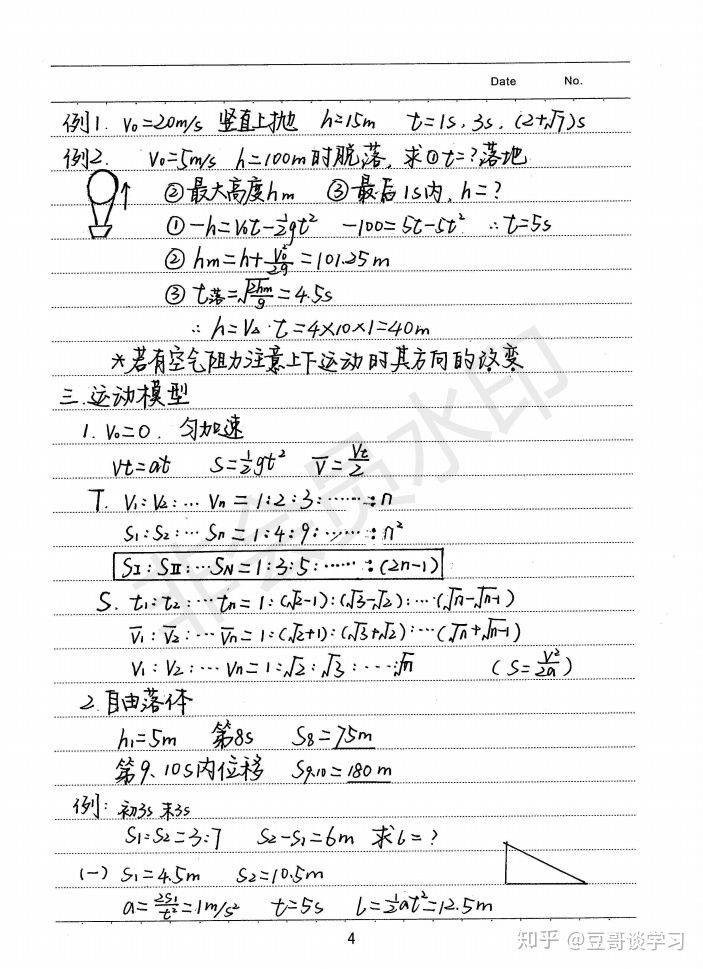 Date No.
例1. V₀=20m/s 竖直上抛 h=15m t=1s, 3s, (2+√7)s
例2. V₀=5m/s h=100m时脱落, 求①t=?落地
②最大高度hm ③最后1s内, h=?
①-h=V₀t-½gt² -100=5t-5t² ∴t=5s
②hm=h+V₀²/2g=101.25m
③t落=√(2hm/g)=4.5s
∴h=V▵·t=4×10×1=40m
*若有空气阻力注意上下运动时其方向的改变
三.运动模型
1.V₀=0. 匀加速
Vt=at S=½gt² V̅=Vt/2
T. V₁:V₂:…Vn=1:2:3:……:n
S₁:S₂:…Sn=1:4:9:……:n²
SⅠ:SⅡ:…SN=1:3:5:……:(2n-1)
S. t₁:t₂:…tn=1:(√2-1):(√3-√2):…(√n-√n-1)
V̅₁:V̅₂:…V̅n=1:(√2+1):(√3+√2):…(√n+√n-1)
V₁:V₂:…Vn=1:√2:√3:…√n (S=V²/2a)
2.自由落体
h₁=5m 第8s S₈=75m
第9、10s内位移 S9,10=180m
例: 初3s 末3s
S₁:S₂=3:7 S₂-S₁=6m 求L=?
(一) S₁=4.5m S₂=10.5m
a=2S₁/t²=1m/s² t=5s L=½at²=12.5m
4
非会员水印
知乎 @豆哥谈学习